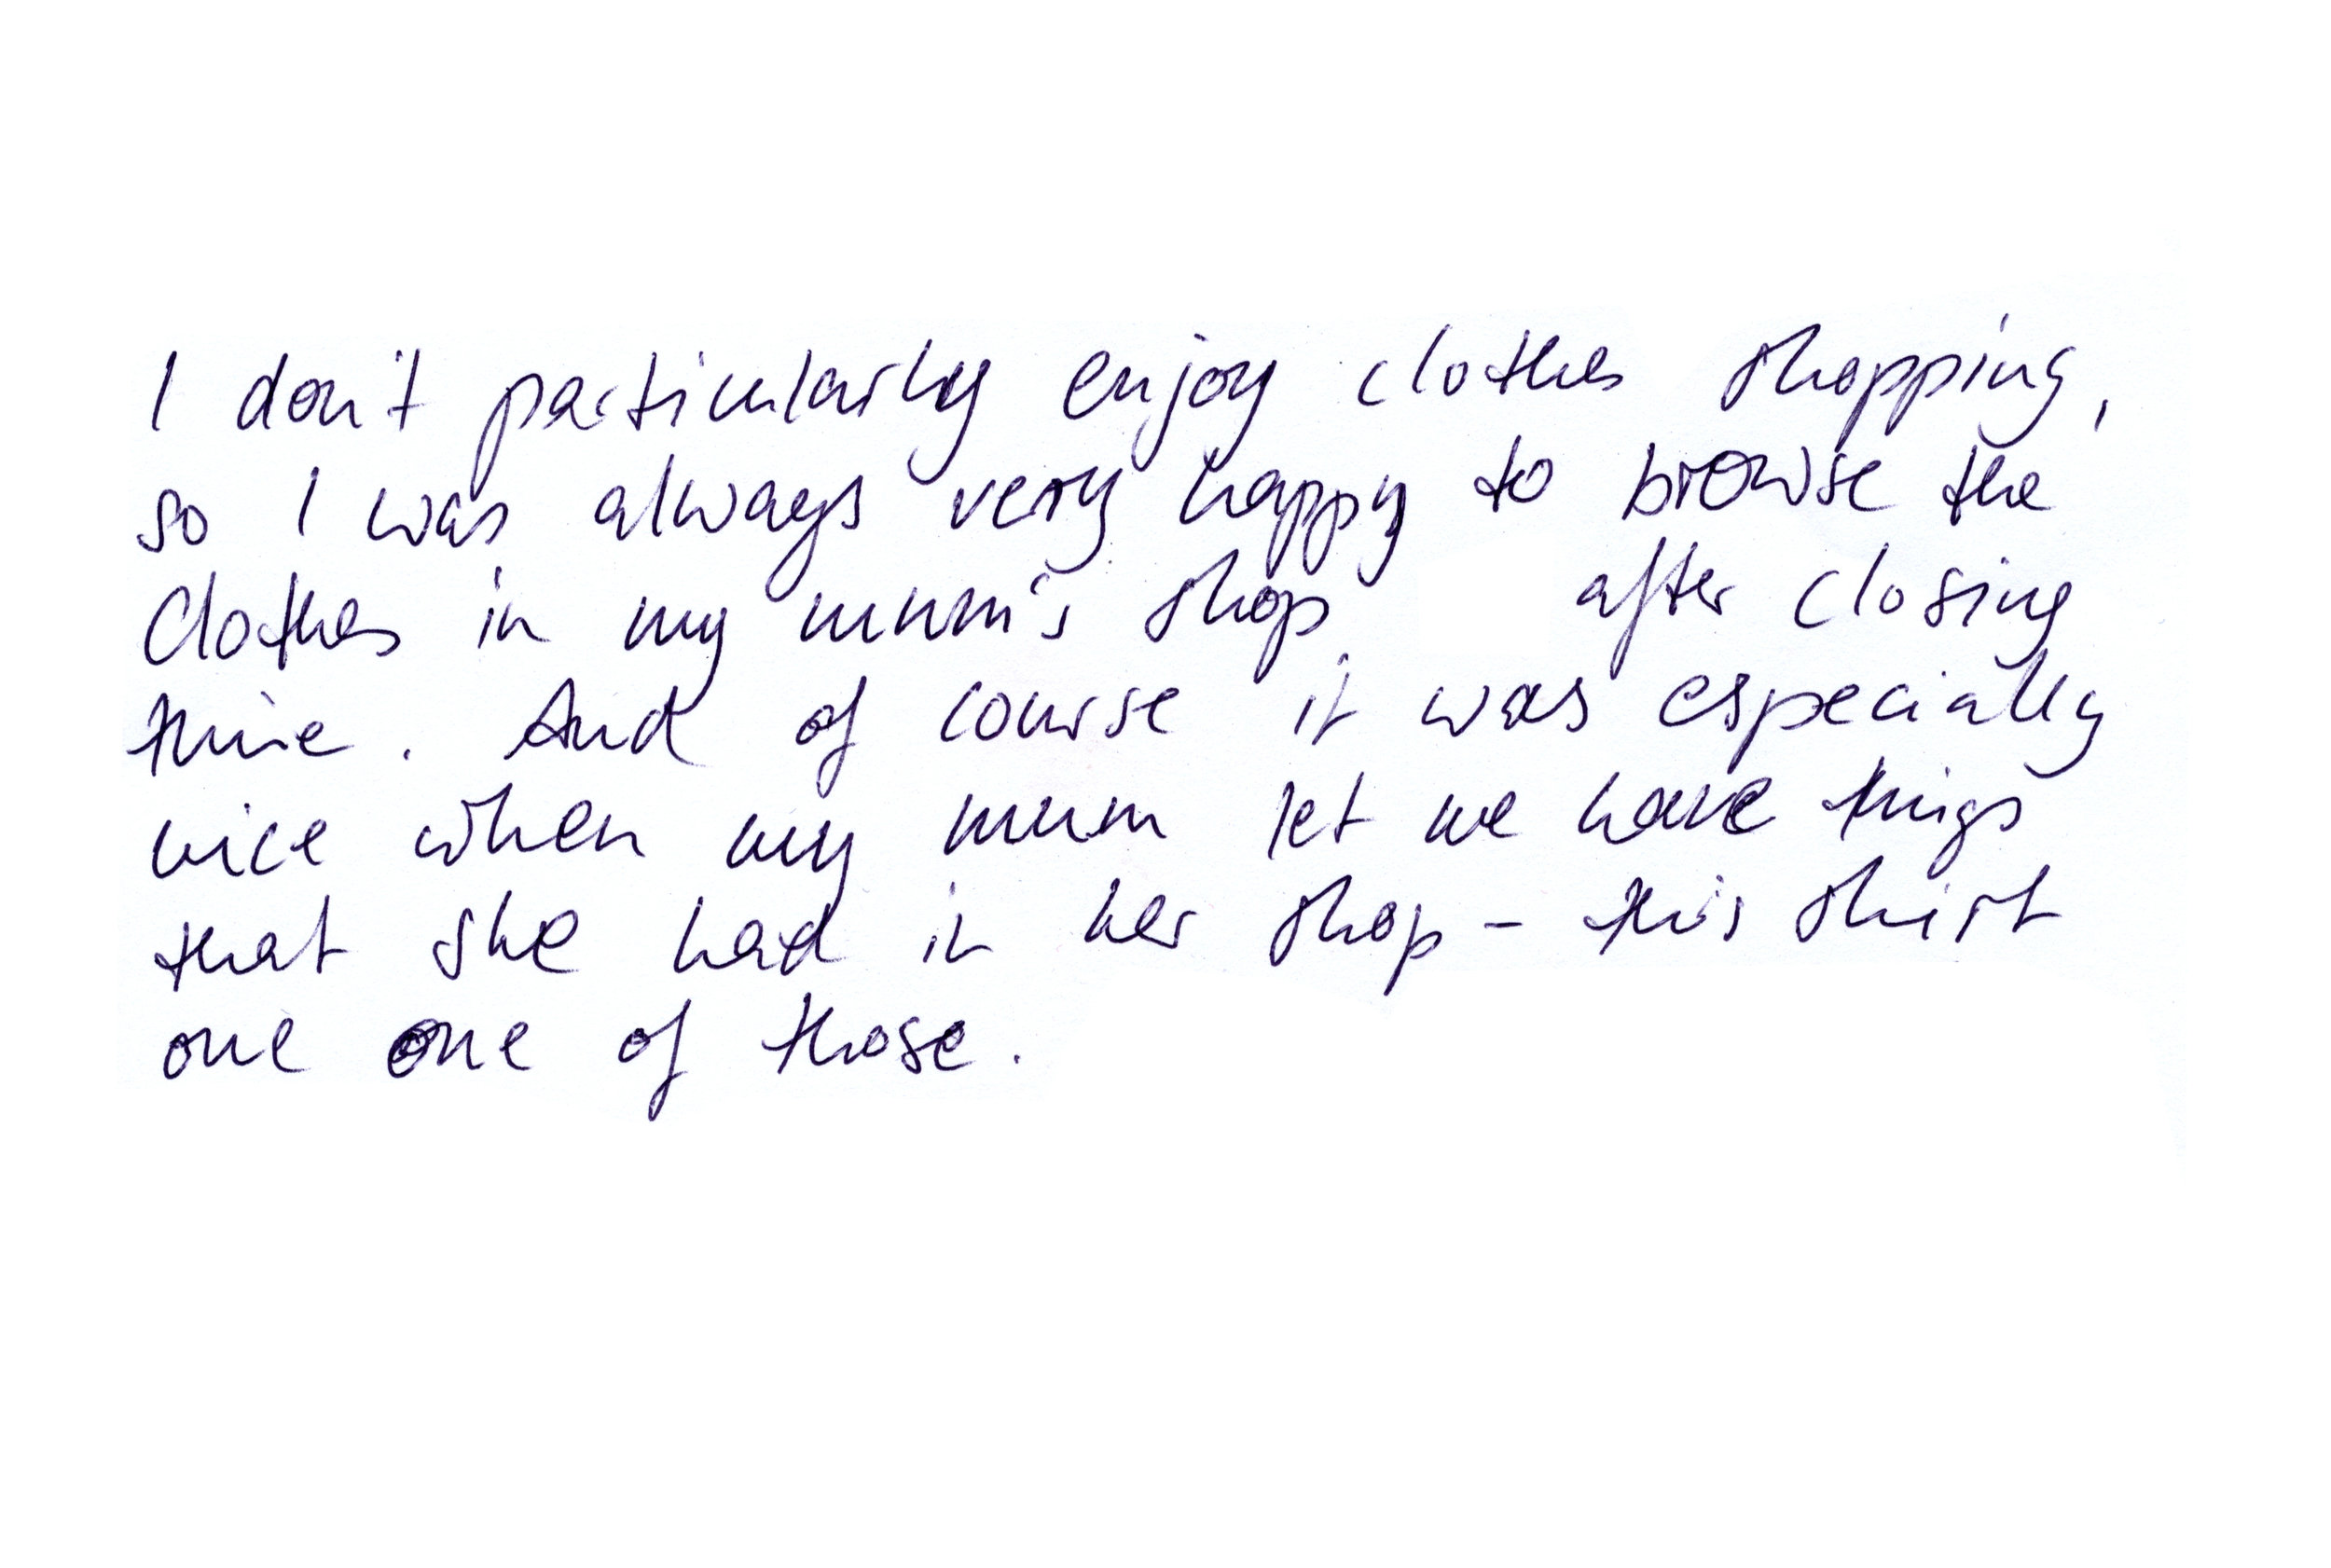 I don't particularly enjoy clothes shopping,
so I was always very happy to browse the
Clothes in my mum's shop after closing
time. And of course it was especially
nice when my mum let me have things
that she had in her shop - this shirt
one one of those.